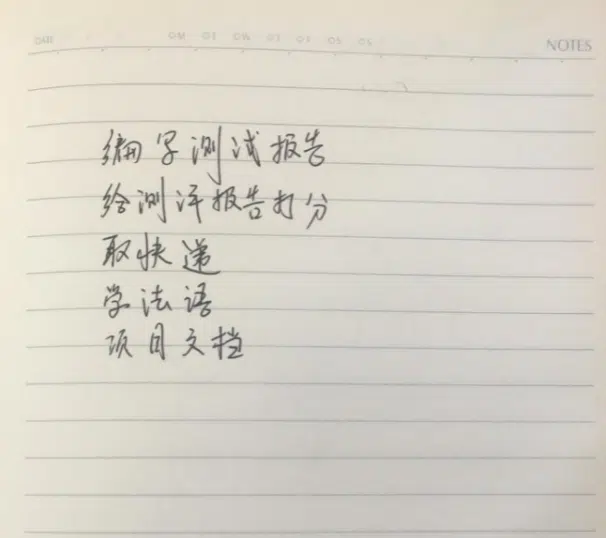 NOTES
编写测试报告
给测评报告打分
取快递
学法语
项目文档